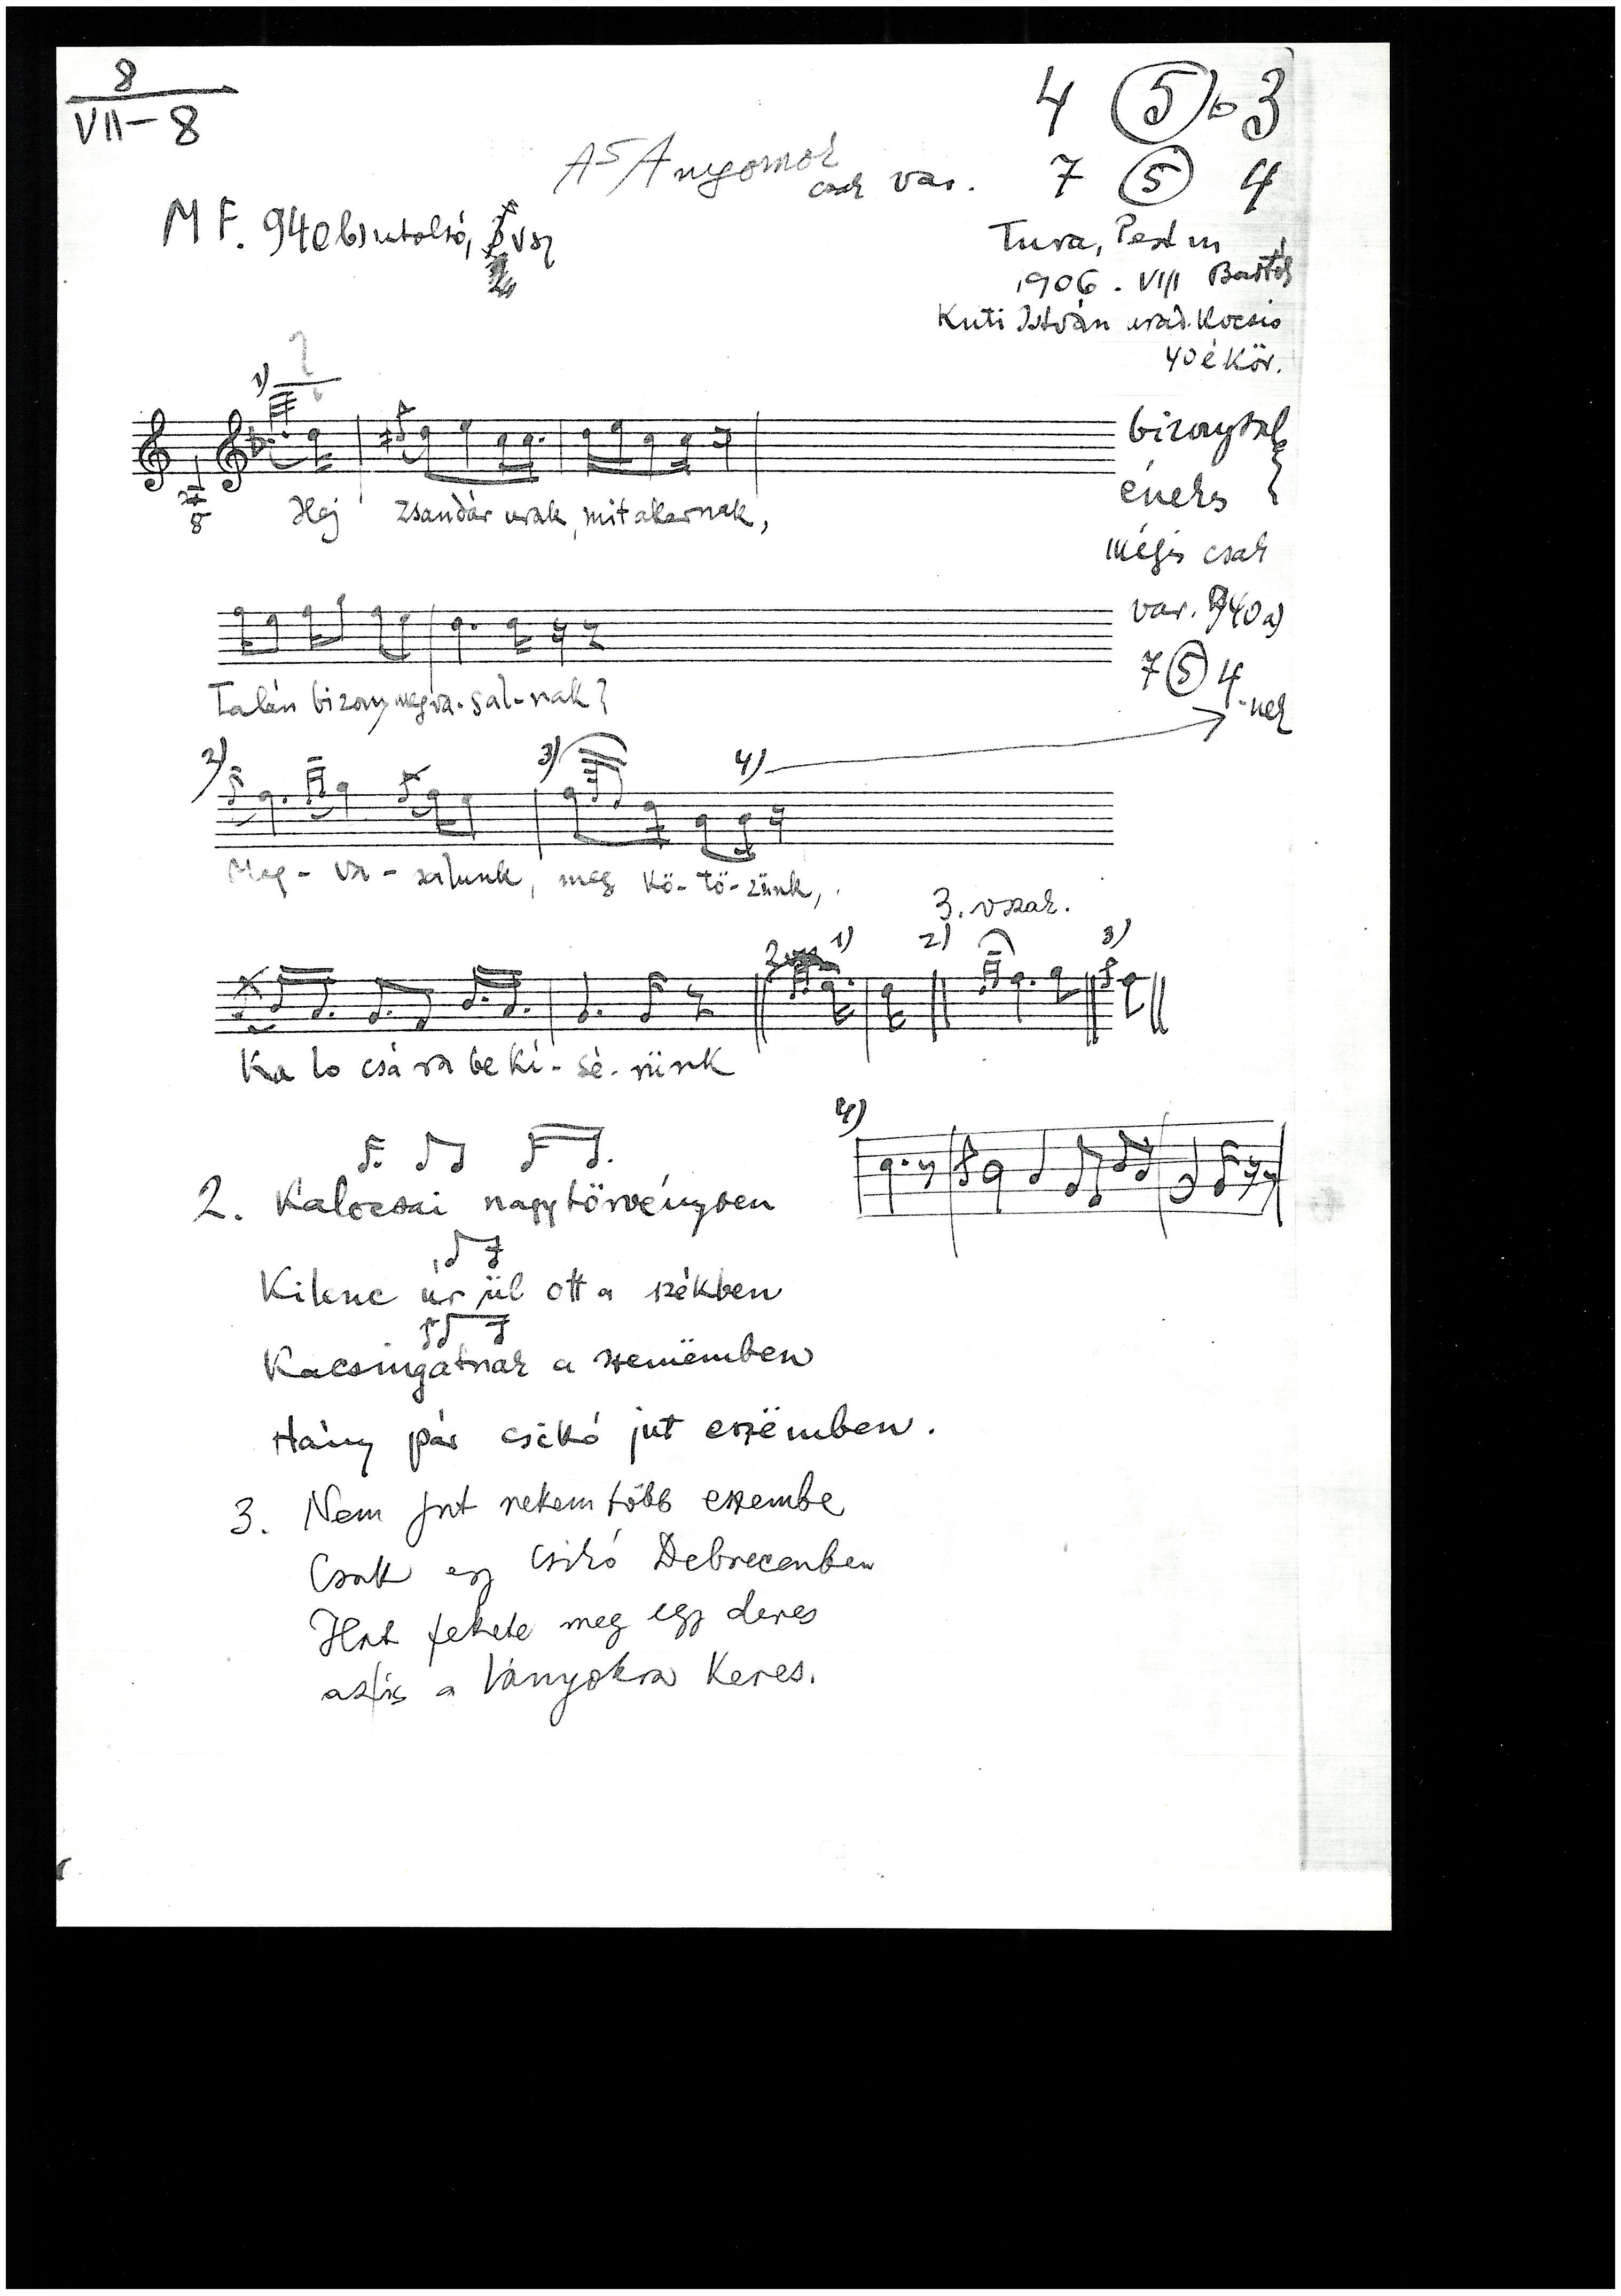 8
VII-8
4 5 b3
7 5 4
var.
MF. 940b) utolsó,
Tura, Pest m
1906. VIII Bartók
Kuti István urad. Kocsis
40 é kör.
1)
Hej Zsandár urak, mit akarnak,
bizonytal
énekes
mégis csak
var. 940a)
7 5 4
-nek
Talán bizony megva-sal-nak?
2) 3) 4)
Meg-va-salunk, meg kö-tö-zünk,
3. vszak.
1) 2) 3)
Ka lo csá ra be ki-sé-rünk
4)
2. Kalocsai nagytörvényben
Kilenc úr ül ott a székben
Kacsingatnak a szemëmben
Hány pár csikó jut eszëmben.
3. Nem jut nekem több eszembe
Csak egy csikó Debrecenben
Hat fekete meg egy deres
az is a lányokra keres.